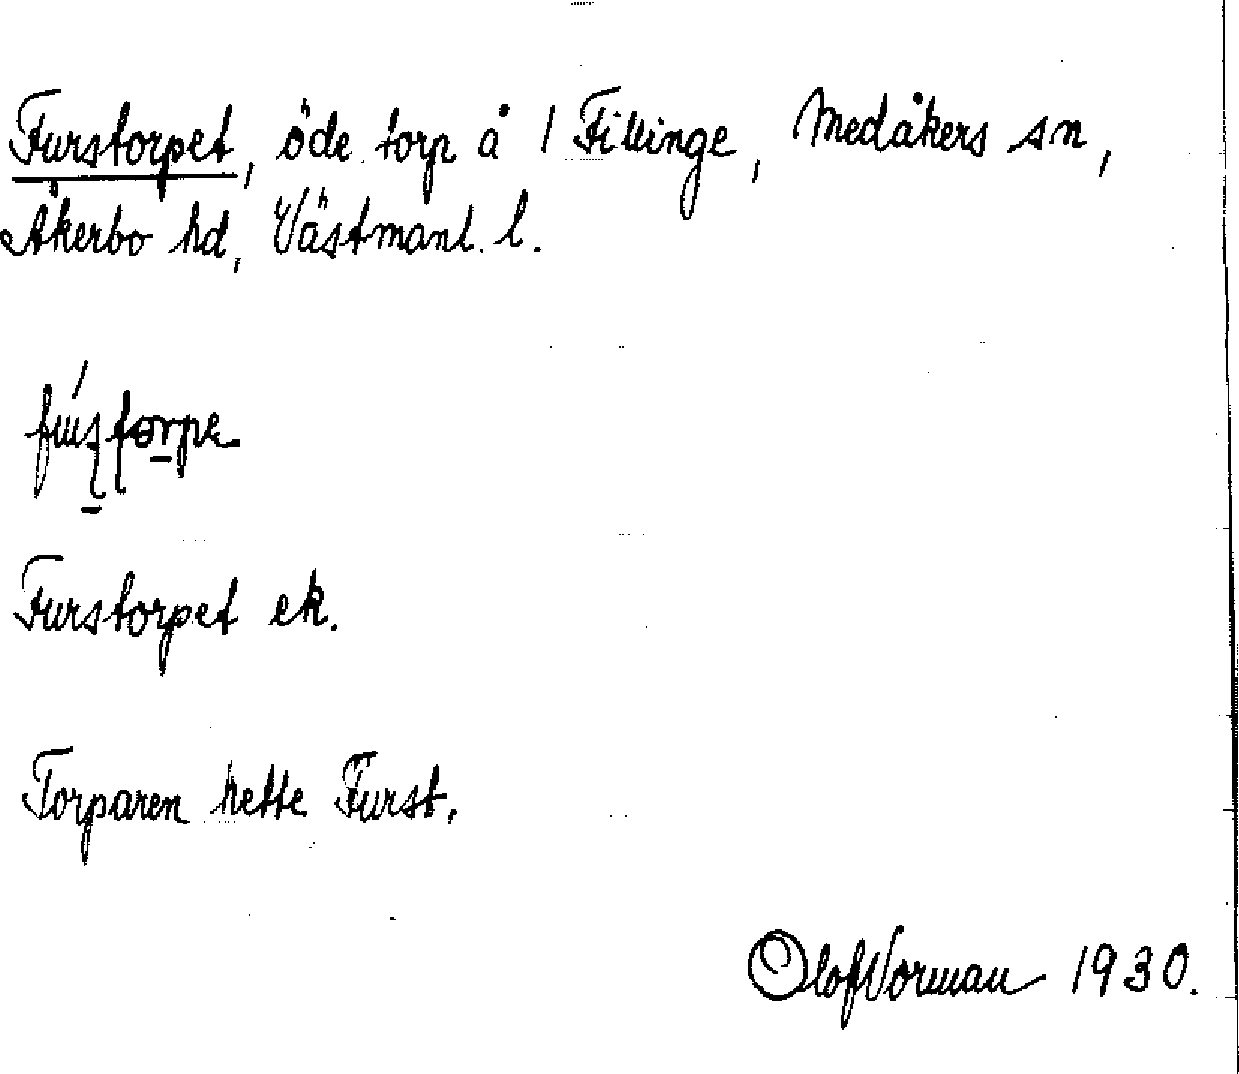 Furstorpet, öde torp å 1 Fillinge, Medåkers sn,
Åkerbo hd, Västmanl. l.
Furstorpet ek.
Torparen hette Furst.
Olof Vorman 1930.